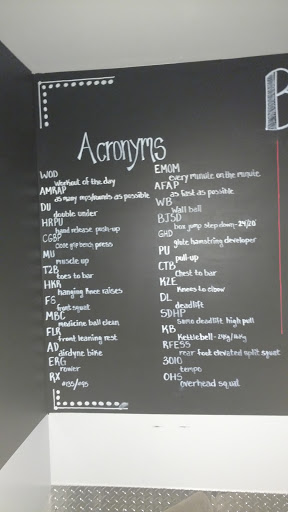 Acronyms
WOD
workout of the day
AMRAP
as many reps/rounds as possible
DU
double under
HRPU
hand release push-up
CGBP
close grip bench press
MU
muscle up
T2B
toes to bar
HKR
hanging knee raises
FS
front squat
MBC
medicine ball clean
FLR
front leaning rest
AD
airdyne bike
ERG
rower
RX
#135/#95
EMOM
every minute on the minute
AFAP
as fast as possible
WB
wall ball
BJSD
box jump step down - 24/20
GHD
glute hamstring developer
PU
pull-up
CTB
chest to bar
K2E
knees to elbow
DL
deadlift
SDHP
sumo deadlift high pull
KB
Kettlebell - 24kg/16kg
RFESS
rear foot elevated split squat
3010
tempo
OHS
overhead squat
B